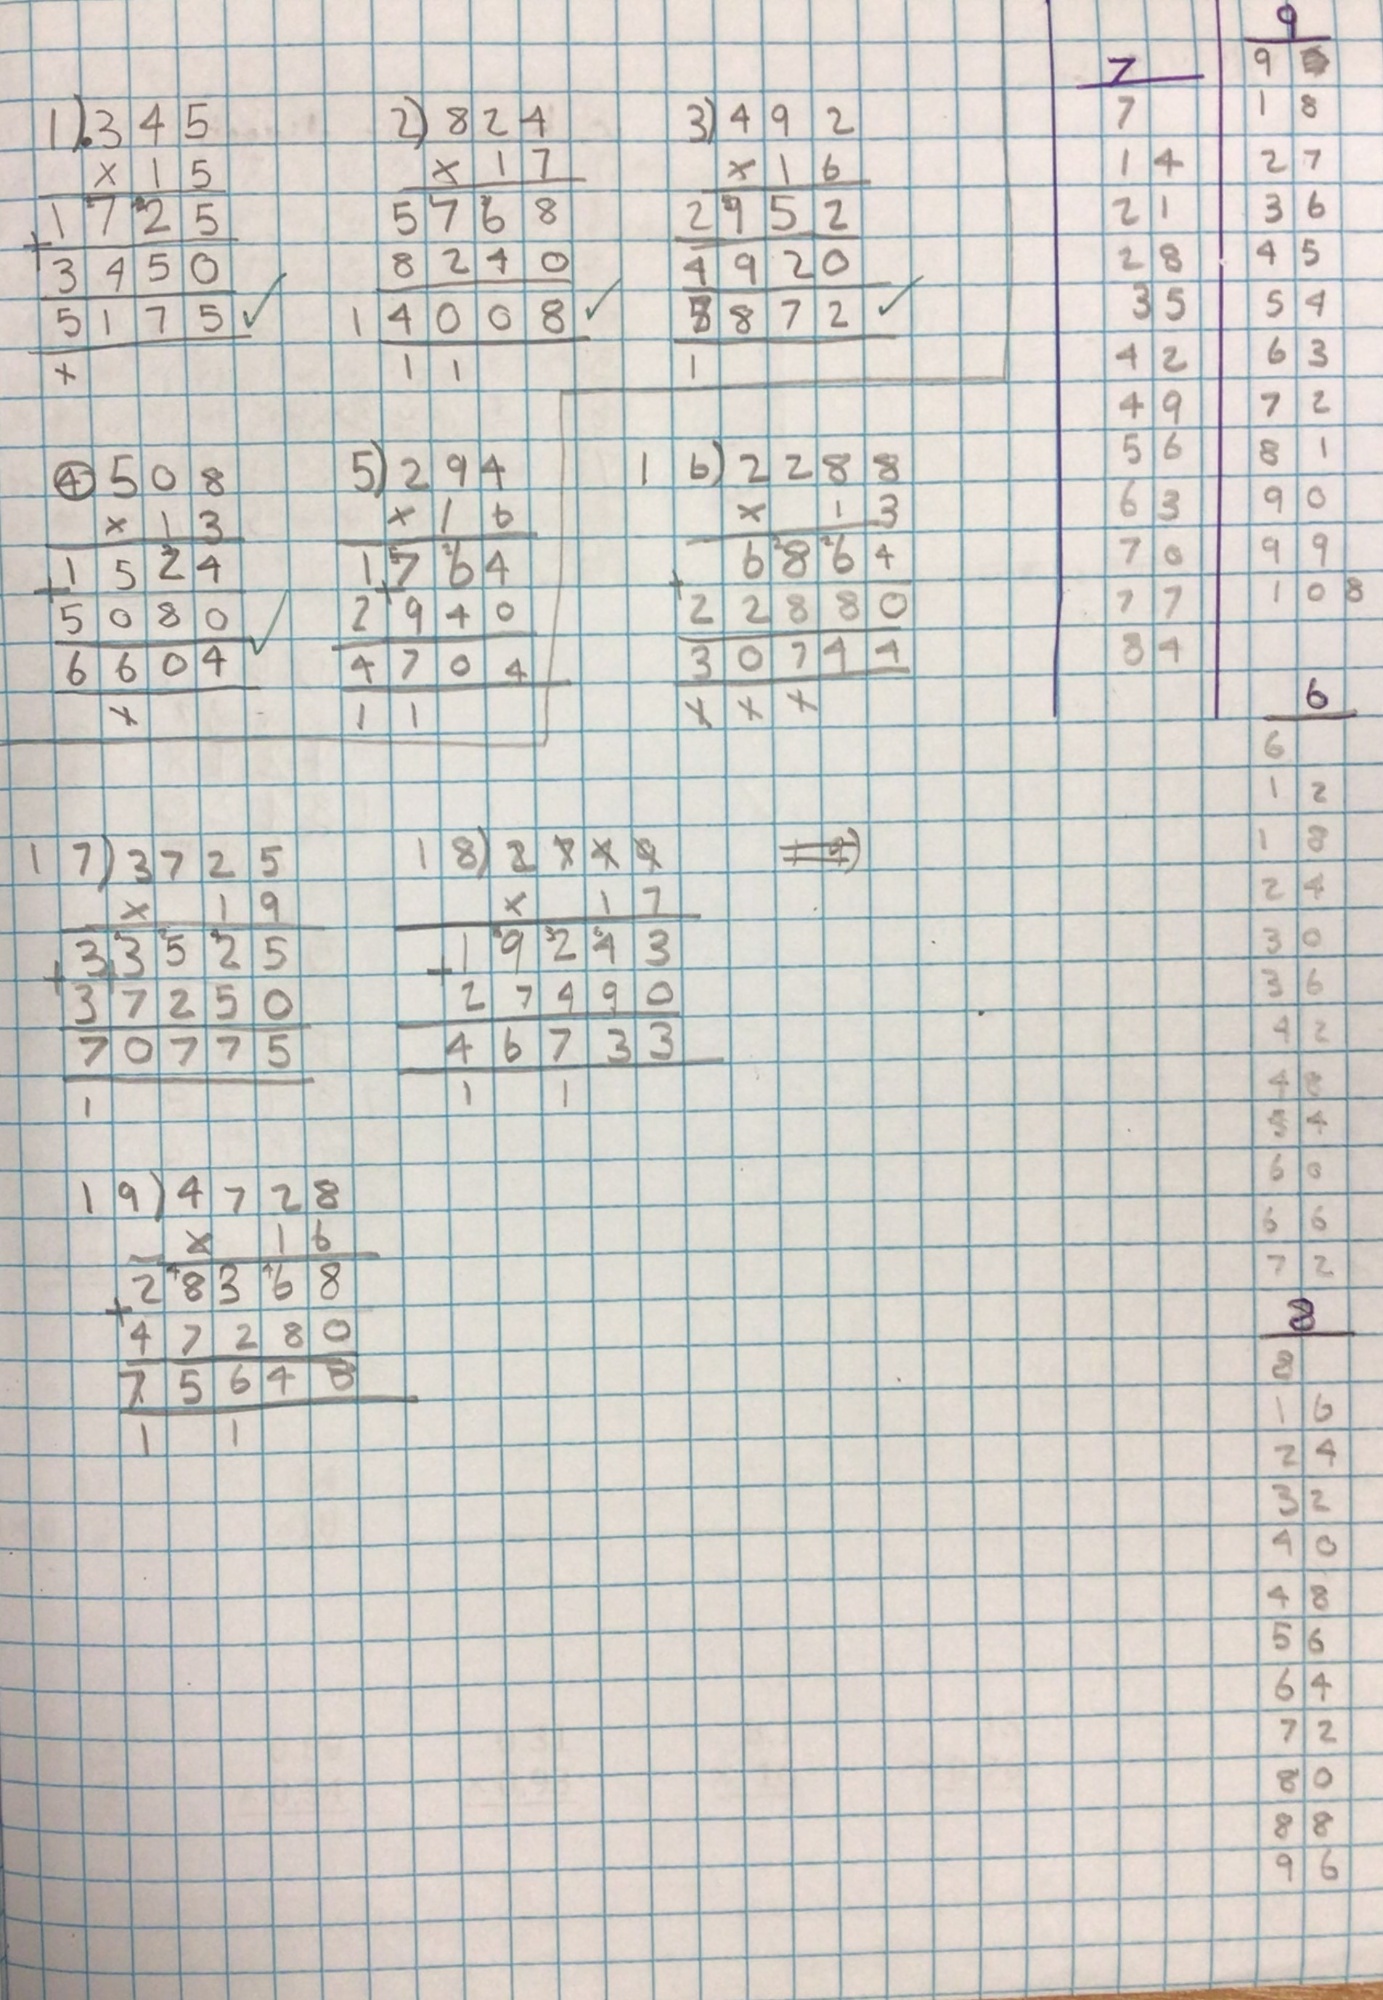 1) 345
x 15
1725
+
3450
5175 ✓
x
2) 824
x 17
5768
8240
14008 ✓
1 1
3) 492
x 16
2952
4920
5872 ✓
1
4) 508
x 13
1524
+
5080
6604 ✓
x
5) 294
x 16
1764
+
2940
4704
1 1
16) 2288
x 13
6864
+
22880
30744
x x x
17) 3725
x 19
33525
+
37250
70775
1
18) 2749
x 17
19243
+
27490
46733
1 1
19) 4728
x 16
28368
+
47280
75648
1 1
7
7
14
21
28
35
42
49
56
63
70
77
84
9
9
18
27
36
45
54
63
72
81
90
99
108
6
6
12
18
24
30
36
42
48
54
60
66
72
8
8
16
24
32
40
48
56
64
72
80
88
96